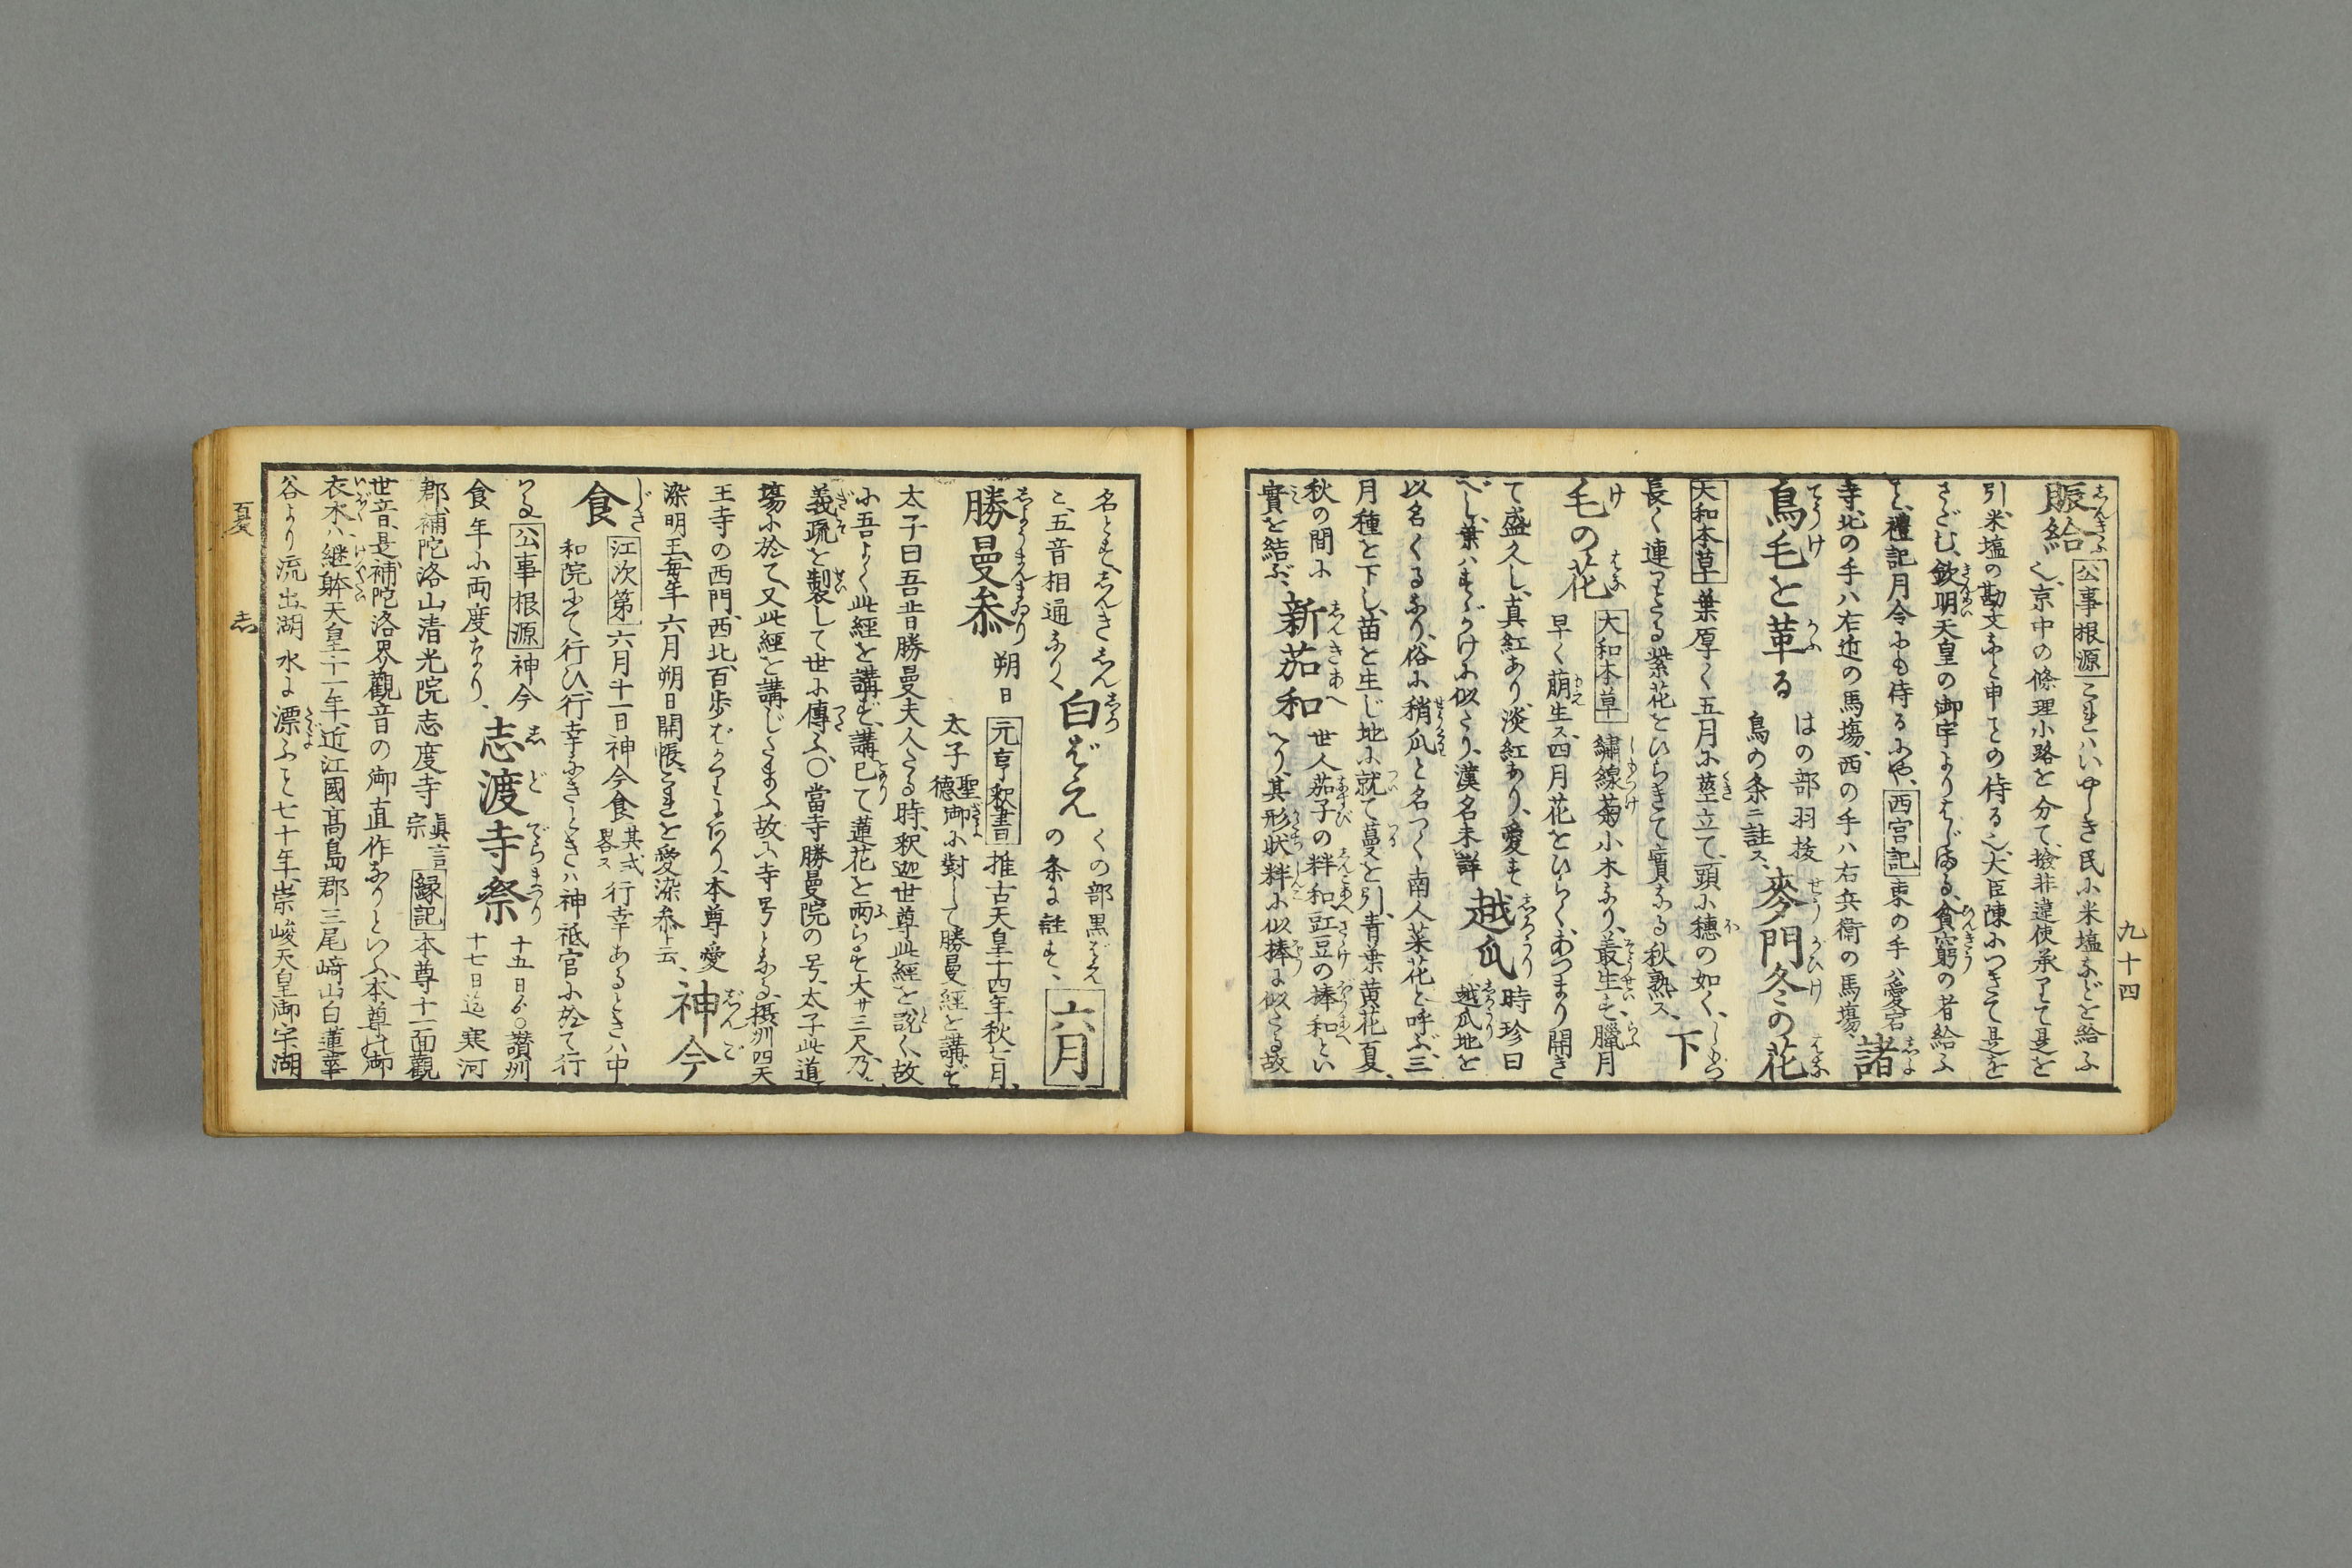 九十四
賑給 公事根源 これハいやしき民に米塩などを給ふ
也、京中の條理小路を分て、撿非違使承りて是を
引、米塩の勘文など申ことの侍る也、大臣陳につきて是を
さだむ、欽明天皇の御宇よりはじまる、貧窮の者給ふ
こと、禮記月令にも侍るにや、西宮記 東の手ハ愛宕
寺、北の手ハ右近の馬塲、西の手ハ右兵衛の馬塲、諸
鳥毛を革る はの部羽抜
鳥の条ニ註ス、麥門冬の花
大和本草 葉厚く五月に莖立て、頭に穗の如く、
長く連りたる紫花をひらきて實なる、秋熟ス、下
毛の花 大和本草 繍線菊小木なり、叢生す、臘月
早く萠生ス、四月花をひらく、あつまり開き
て盛久し、真紅あり、淡紅あり、愛す
べし、葉ハ
に似たり、漢名未詳 越瓜 時珍曰
越瓜地を
以名くるなり、俗に稍瓜と名つく、南人菜花と呼ぶ、三
月種を下し、苗を生じ地に就て蔓を引、青葉黄花夏、
秋の間に 新茄和 世人茄子の糂和豇豆の捧和とい
實を結ぶ、 へり、其形状糂に似捧に似たる故
名とす、しんきしん
こ、五音相通なり、白ばえ くの部黒ばえ
の条に註す、六月
勝曼叅 朔日 元亨釈書 推古天皇十四年秋七月、
太子 聖徳御 に對して勝曼經を講ず
太子曰吾昔勝曼夫人たる時、釈迦世尊此經を説く、故
に吾よく此經を講ず、講已て蓮花を雨らす大サ三尺、乃
義疏を製して世に傳ふ、〇當寺勝曼院の号、太子此道
塲に於て、又此經を講じたまふ故ハ寺号となる、摂州四天
王寺の西門、西北、百歩ばかりにあり、本尊愛
染明王、毎年六月朔日開帳、これを愛染叅ト云、神今
食 江次第 六月十一日神今食 其式畧ス 行幸あるときハ中
和院にて、行ひ、行幸なきときハ神祗官に於て行
はる 公事根源 神今
食年に両度なり、志渡寺祭 十五日ゟ〇讃州
十七日迄 寒河
郡、補陀洛山清光院志度寺 眞言宗 縁記 本尊十一面觀
世音、是補陀洛界觀音の御直作なりといふ、本尊の御
衣木ハ継躰天皇十一年、近江國髙島郡三尾﨑山白蓮華
谷より流出湖水に漂ふこと七十年、崇峻天皇御宇湖
夏 志